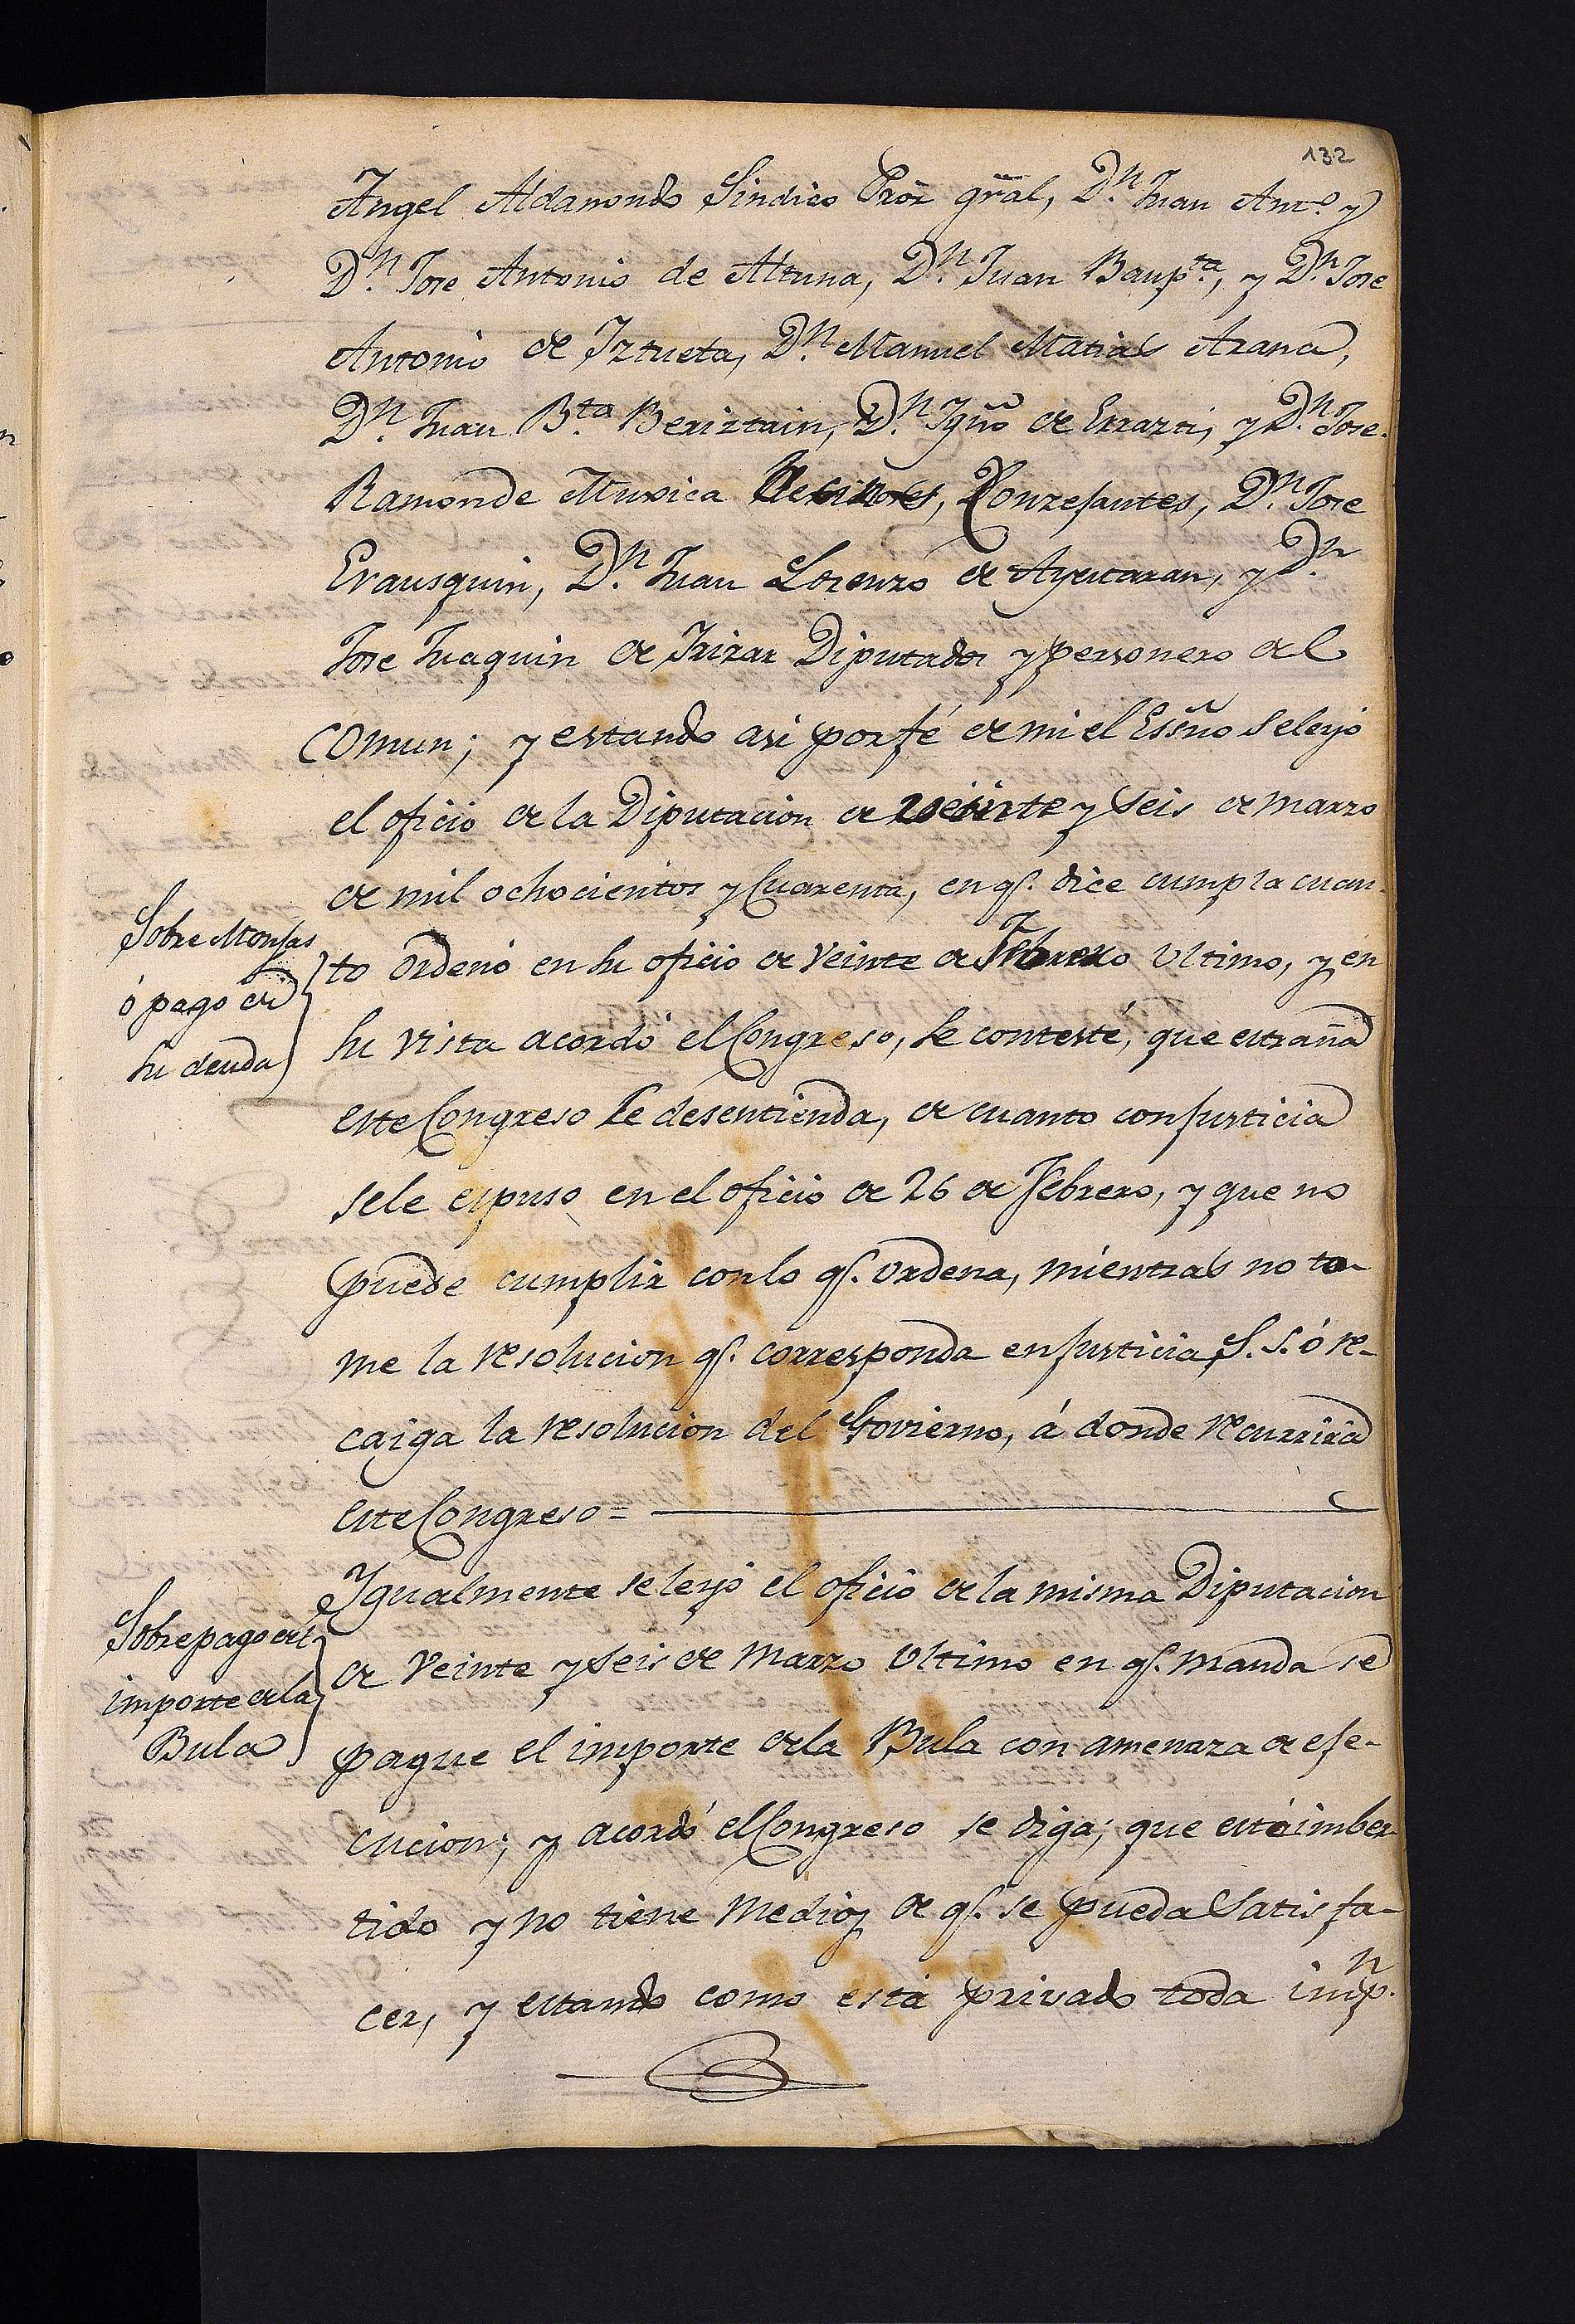 132
Angel Aldamondo Sindico Prõr grãl, Dn. Juan Anto. y
Dn. Jose Antonio de Altuna, Dn. Juan Baupta, y Dn. Jose
Antonio de Iztueta, Dn. Manuel Matias Arana,
Dn. Juan Bta. Beriztain, Dn. Ignõ de Errazti, y Dn. Jose
Ramon de Muxica Conzejantes, Dn. Jose
Erausquin, Dn. Juan Lorenzo de Ayestaran, y Dn.
Jose Juaquin de Irizar Diputados y personero del
comun; y estando asi por fé de mi el Essño se leyo
el oficio de la Diputacion de veinte y seis de marzo
de mil ochocientos y Cuarenta, en qe. dice cumpla cuan-
Sobre Monjas
ó pago de
su deuda
to ordenó en su oficio de veinte de Febrero ultimo, y en
su vista acordó el Congreso, se conteste, que estraña
este Congreso se desentienda, de cuanto con justicia
se le espuso en el oficio de 26 de Febrero, y que no
puede cumplir con lo qe. ordena, mientras no to-
me la resolucion qe. corresponda en justicia S. S. ó re-
caiga la resolucion del Govierno, á donde recurrirá
este Congreso =
Sobre pago del
importe de la
Bula
Igualmente se leyó el oficio de la misma Diputacion
de veinte y seis de Marzo ultimo en qe. manda se
pague el importe de la Bula con amenaza de eje-
cucion; y acordó el Congreso se diga; que está imber-
tido y no tiene medios de qe. se pueda satisfa-
cer, y estando como está privado toda impn.